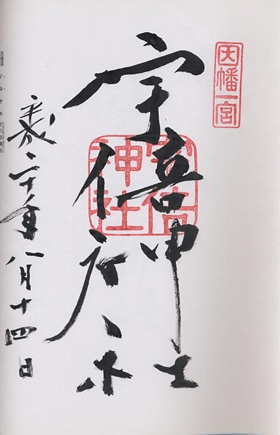 因幡一宮
宇倍神社
宇倍神社
平成二十年八月十四日